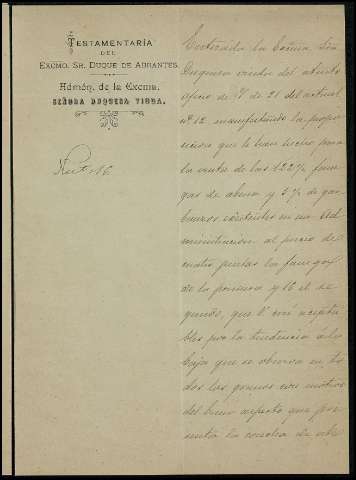 TESTAMENTARÍA
DEL
EXCMO. SR. DUQUE DE ABRANTES.
Admón. de la Excma.
SEÑORA DUQUESA VIUDA.
Enterada la Excma Sra
Duquesa viuda del atento
oficio de V de 21 del actual
nº 12 manifestando la propo
sición que le han hecho para
la venta de las 122½ fane
gas de abena y 5½ de gar
banzos existentes en esa ad
ministracion al precio de
cuatro pesetas la fanega
de la primera y 16 el se
gundo, que V cree acepta
bles por la tendencia á la
baja que se observa en to
dos los granos con motivo
del buen aspecto que pre
senta la cosecha de